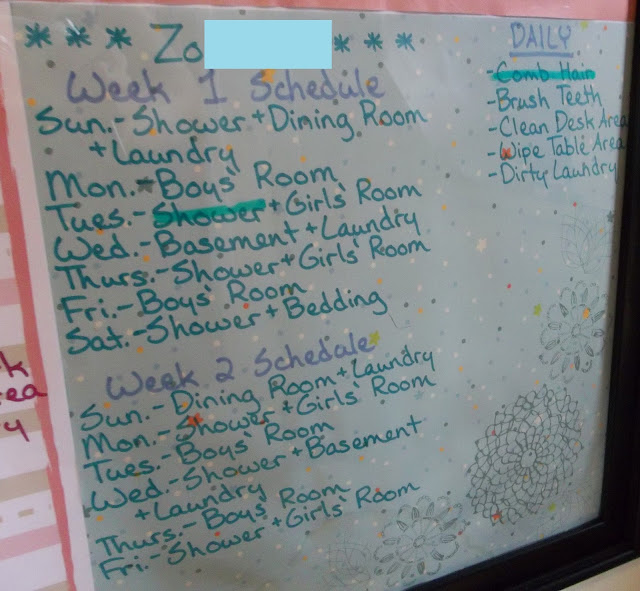 *** Zo ***
Week 1 Schedule
Sun.-Shower+Dining Room
+Laundry
Mon.-Boys' Room
Tues.-Shower+Girls' Room
Wed.-Basement+Laundry
Thurs.-Shower+Girls' Room
Fri.-Boys' Room
Sat.-Shower+Bedding
Week 2 Schedule
Sun.-Dining Room+Laundry
Mon.-Shower+Girls' Room
Tues.-Boys' Room
Wed.-Shower+Basement
+Laundry
Thurs.-Boys' Room
Fri.-Shower+Girls' Room
DAILY
-Comb Hair
-Brush Teeth
-Clean Desk Area
-Wipe Table Area
-Dirty Laundry